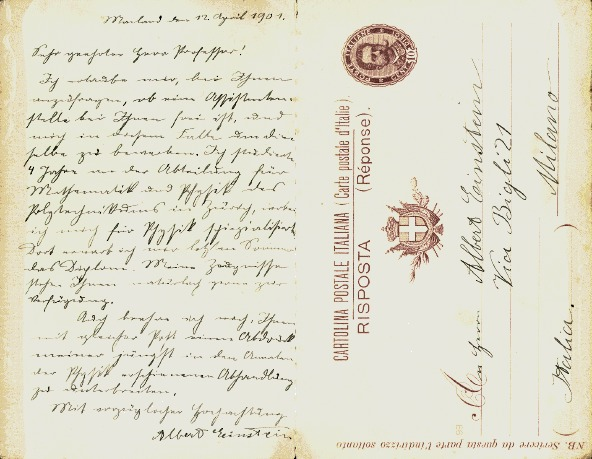 Mailand den 12. April 1901.
Sehr geehrter Herr Professor!
Ich erlaube mir, bei Ihnen
anzufragen, ob eine Assistenten-
stelle bei Ihnen frei ist, und
mich in diesem Falle um die-
selbe zu bewerben. Ich studierte
4 Jahre an der Abteilung für
Mathematik und Physik des
Polytechnikums in Zürich, wobei
ich mich für Physik spezialisierte.
Dort erwarb ich mir letzten Sommer
das Diplom. Meine Zeugnisse
stehen Ihnen natürlich gerne zur
Verfügung.
Auch beehre ich mich, Ihnen
mit gleicher Post einen Abdruck
meiner jüngst in den Annalen
der Physik erschienenen Abhandlung
zu unterbreiten.
Mit vorzüglicher Hochachtung
Albert Einstein
POSTALE ITALIANE
CARTOLINA POSTALE ITALIANA (Carte postale d'Italie).
RISPOSTA (Réponse).
Herrn
Albert Einstein
Via Bigli 21
Milano
(Italia.)
NB. Scrivere da questa parte l'indirizzo soltanto